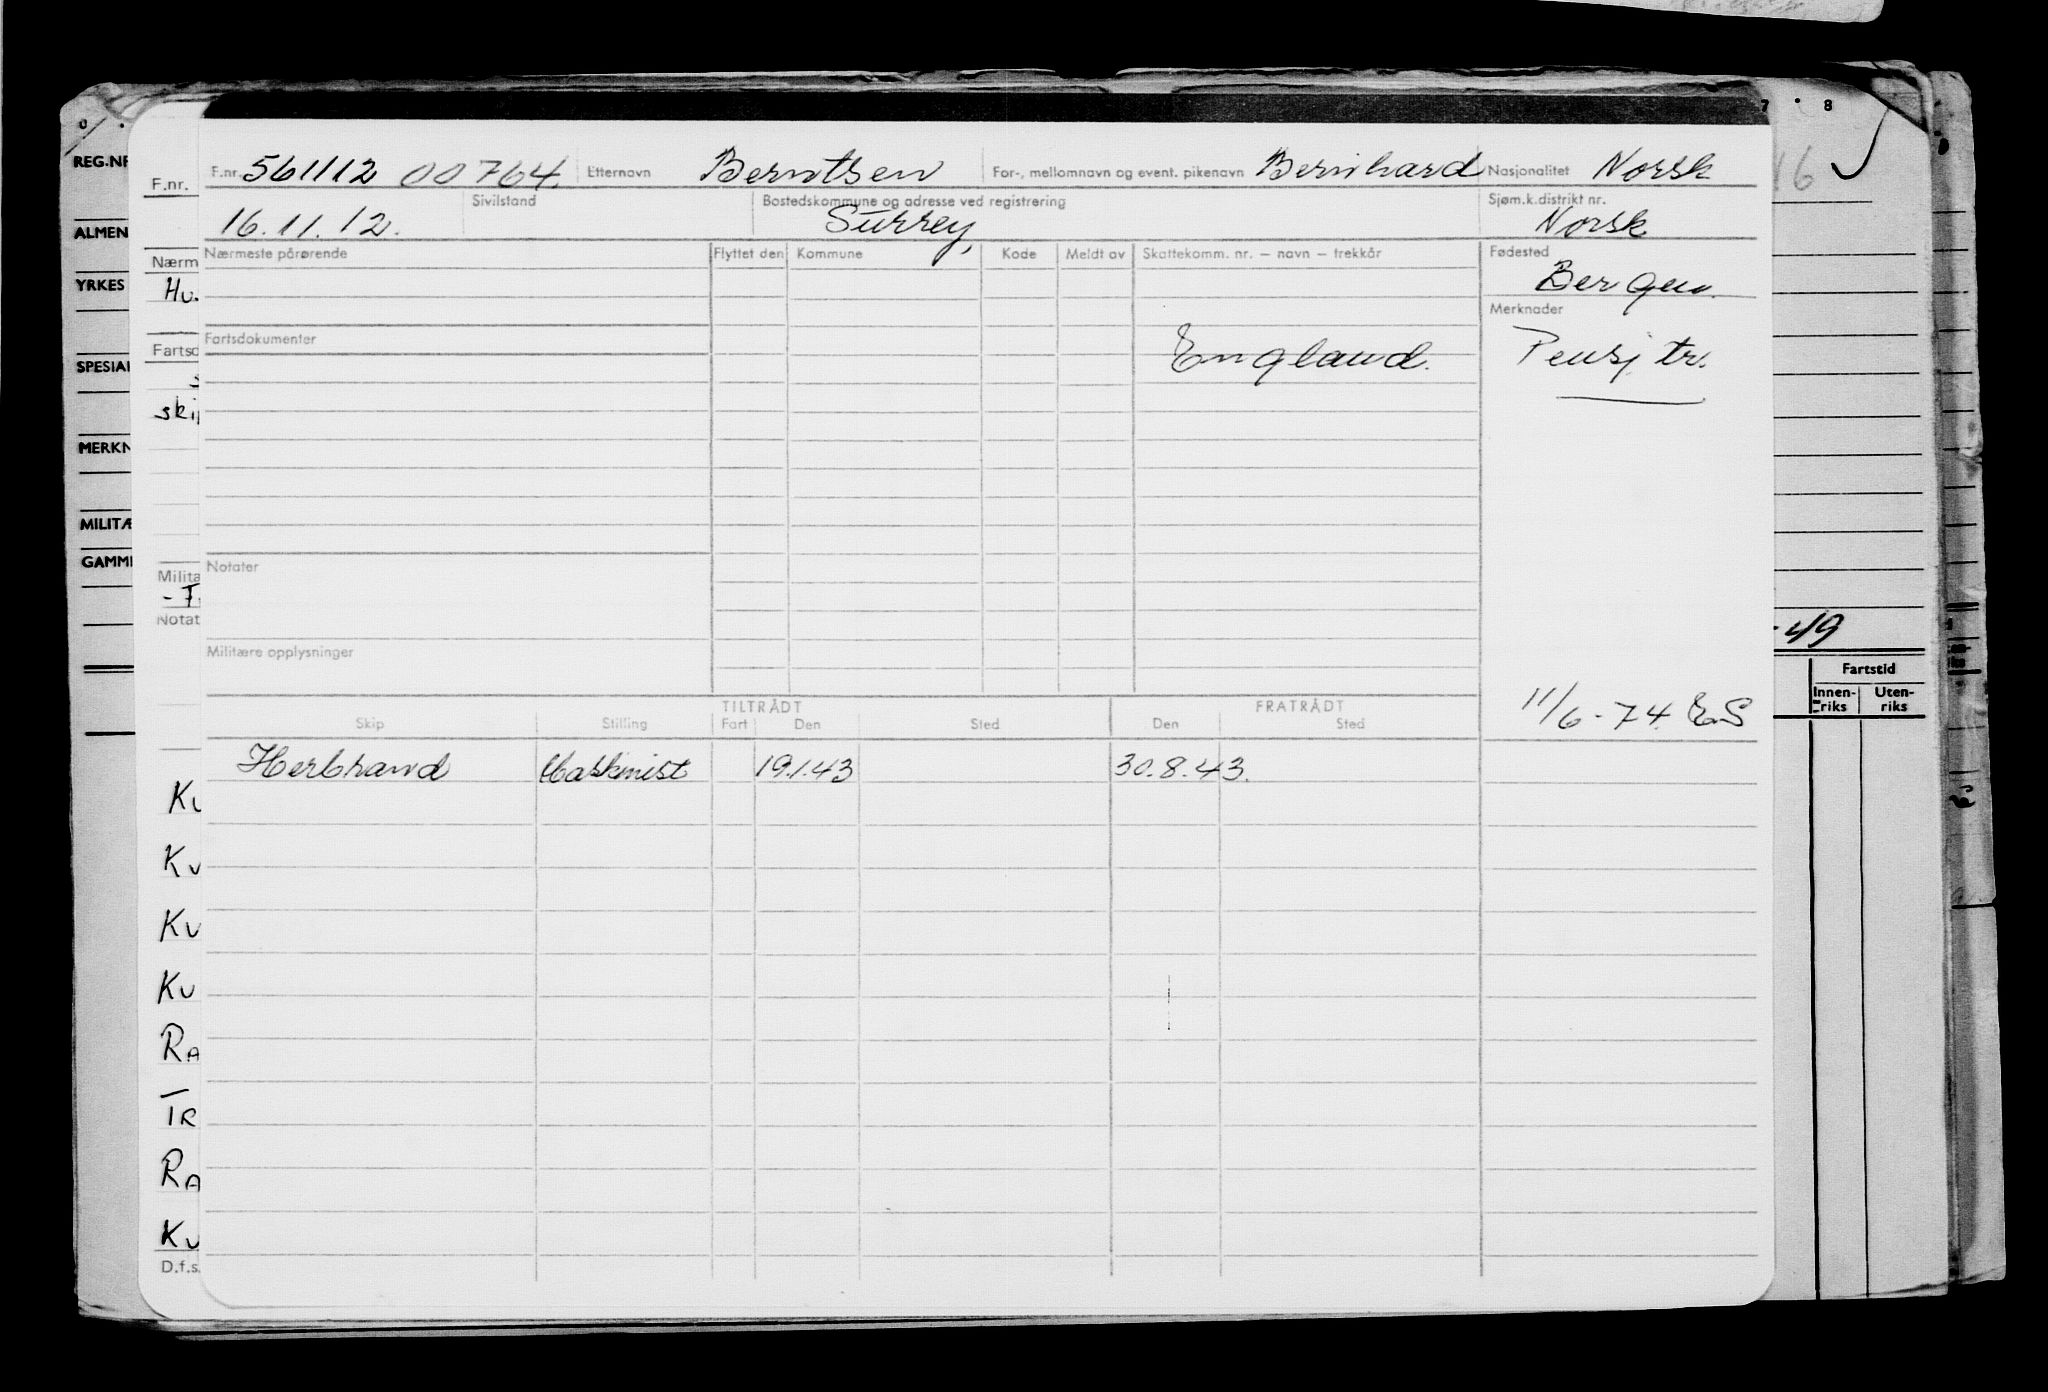 7 . 8
REG.NR
F.nr.
F.nr. 561112 00764. Etternavn Berntsen For-, mellomnavn og event. pikenavn Bernhard Nasjonalitet Norsk
16
16.11.12. Sivilstand Bostedskommune og adresse ved registrering Surrey, Sjøm.k.distrikt nr. Norsk
ALMEN
Nærm
Nærmeste pårørende Flyttet den Kommune Kode Meldt av Skattekomm. nr. – navn – trekkår Fødested
YRKES
Hu.
Bergen.
Merknader
Fartsd
Fartsdokumenter England. Pensj. tr.
SPESIAL
ski
MERKN
MILITÆ
GAMME
Milita
Notater
Notat
- 49
Militære opplysninger
Fartstid
Innen-riks Uten-riks
11/6 - 74 E.S
TILTRÅDT FRATRÅDT
Skip Stilling Fart Den Sted Den Sted
Herbrand Maskmist 19.1.43 30.8.43.
Ku
Kv
Kv
Ku
RA
TR
RA
Ku
D.f.s.